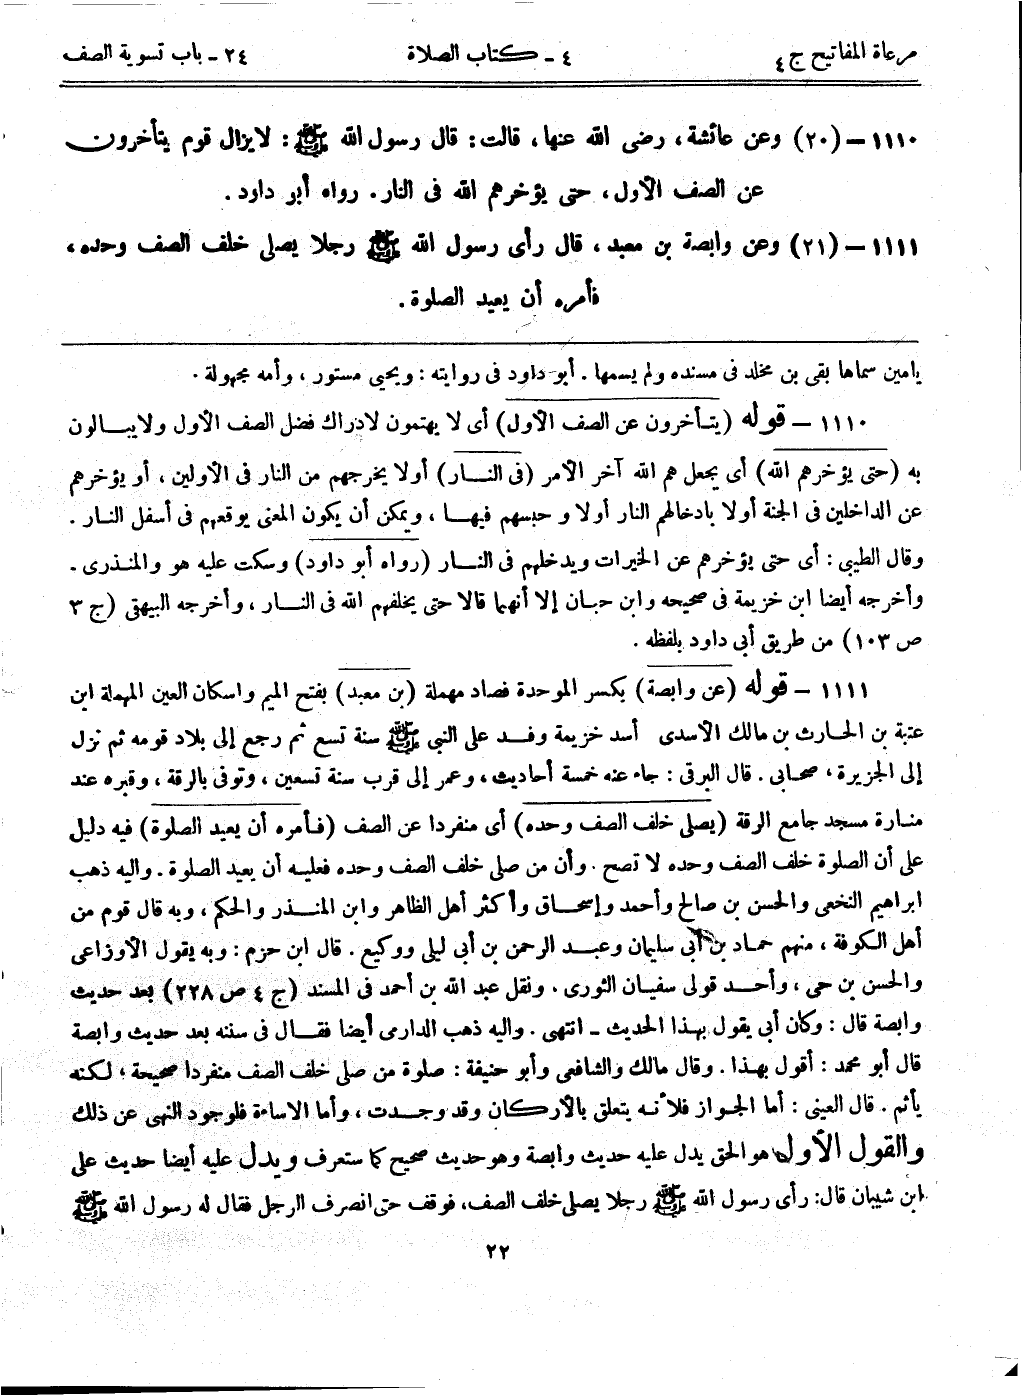 مرعاة المفاتيح ج ٤ ٤ - كتاب الصلاة ٢٤ - باب تسوية الصف
١١١٠ - (٢٠) وعن عائشة، رضى الله عنها، قالت: قال رسول الله ﷺ: لايزال قوم يتأخرون
عن الصف الأول، حتى يؤخرهم الله فى النار. رواه أبو داود.
١١١١ - (٢١) وعن وابصة بن معبد، قال رأى رسول الله ﷺ رجلا يصلى خلف الصف وحده،
فأمره أن يعيد الصلوة.
يامين سماها بقى بن مخلد فى مسنده ولم يسمها. أبو داود فى روايته: ويحيى مستور، وأمه مجهولة.
١١١٠ - قوله (يتأخرون عن الصف الأول) أى لا يهتمون لادراك فضل الصف الأول ولايبالون
به (حتى يؤخرهم الله) أى يجعل هم الله آخر الأمر (فى النار) أولا يخرجهم من النار فى الأولين، أو يؤخرهم
عن الداخلين فى الجنة أولا بادخالهم النار أولا وحبسهم فيها، ويمكن أن يكون المعنى يوقعهم فى أسفل النار.
وقال الطيبى: أى حتى يؤخرهم عن الخيرات ويدخلهم فى النار (رواه أبو داود) وسكت عليه هو والمنذرى.
وأخرجه أيضا ابن خزيمة فى صحيحه وابن حبان إلا أنهما قالا حتى يخلفهم الله فى النار، وأخرجه البيهقى (ج ٣
ص ١٠٣) من طريق أبى داود بلفظه.
١١١١ - قوله (عن وابصة) بكسر الموحدة فصاد مهملة (بن معبد) بفتح الميم واسكان العين المهملة ابن
عتبة بن الحارث بن مالك الأسدى أسد خزيمة وفد على النبى ﷺ سنة تسع ثم رجع إلى بلاد قومه ثم نزل
إلى الجزيرة، صحابى. قال البرقى: جاء عنه خمسة أحاديث، وعمر إلى قرب سنة تسعين، وتوفى بالرقة، وقبره عند
منارة مسجد جامع الرقة (يصلى خلف الصف وحده) أى منفردا عن الصف (فأمره أن يعيد الصلوة) فيه دليل
على أن الصلوة خلف الصف وحده لا تصح. وأن من صلى خلف الصف وحده فعليه أن يعيد الصلوة. واليه ذهب
ابراهيم النخعى والحسن بن صالح وأحمد وإسحاق وأكثر أهل الظاهر وابن المنذر والحكم، وبه قال قوم من
أهل الكوفة، منهم حماد بن أبى سليمان وعبد الرحمن بن أبى ليلى ووكيع. قال ابن حزم: وبه يقول الأوزاعى
والحسن بن حى، وأحد قولى سفيان الثورى. ونقل عبد الله بن أحمد فى المسند (ج ٤ ص ٢٢٨) بعد حديث
وابصة قال: وكان أبى يقول بهذا الحديث - انتهى. واليه ذهب الدارمى أيضا فقال فى سننه بعد حديث وابصة
قال أبو محمد: أقول بهذا. وقال مالك والشافعى وأبو حنيفة: صلوة من صلى خلف الصف منفردا صحيحة؛ لكنه
يأثم. قال العينى: أما الجواز فلأنه يتعلق بالأركان وقد وجدت، وأما الاساءة فلوجود النهى عن ذلك
والقول الأول هو الحق يدل عليه حديث وابصة وهو حديث صحيح كما ستعرف ويدل عليه أيضا حديث على
ابن شيبان قال: رأى رسول الله ﷺ رجلا يصلى خلف الصف، فوقف حتى انصرف الرجل فقال له رسول الله ﷺ
٢٢